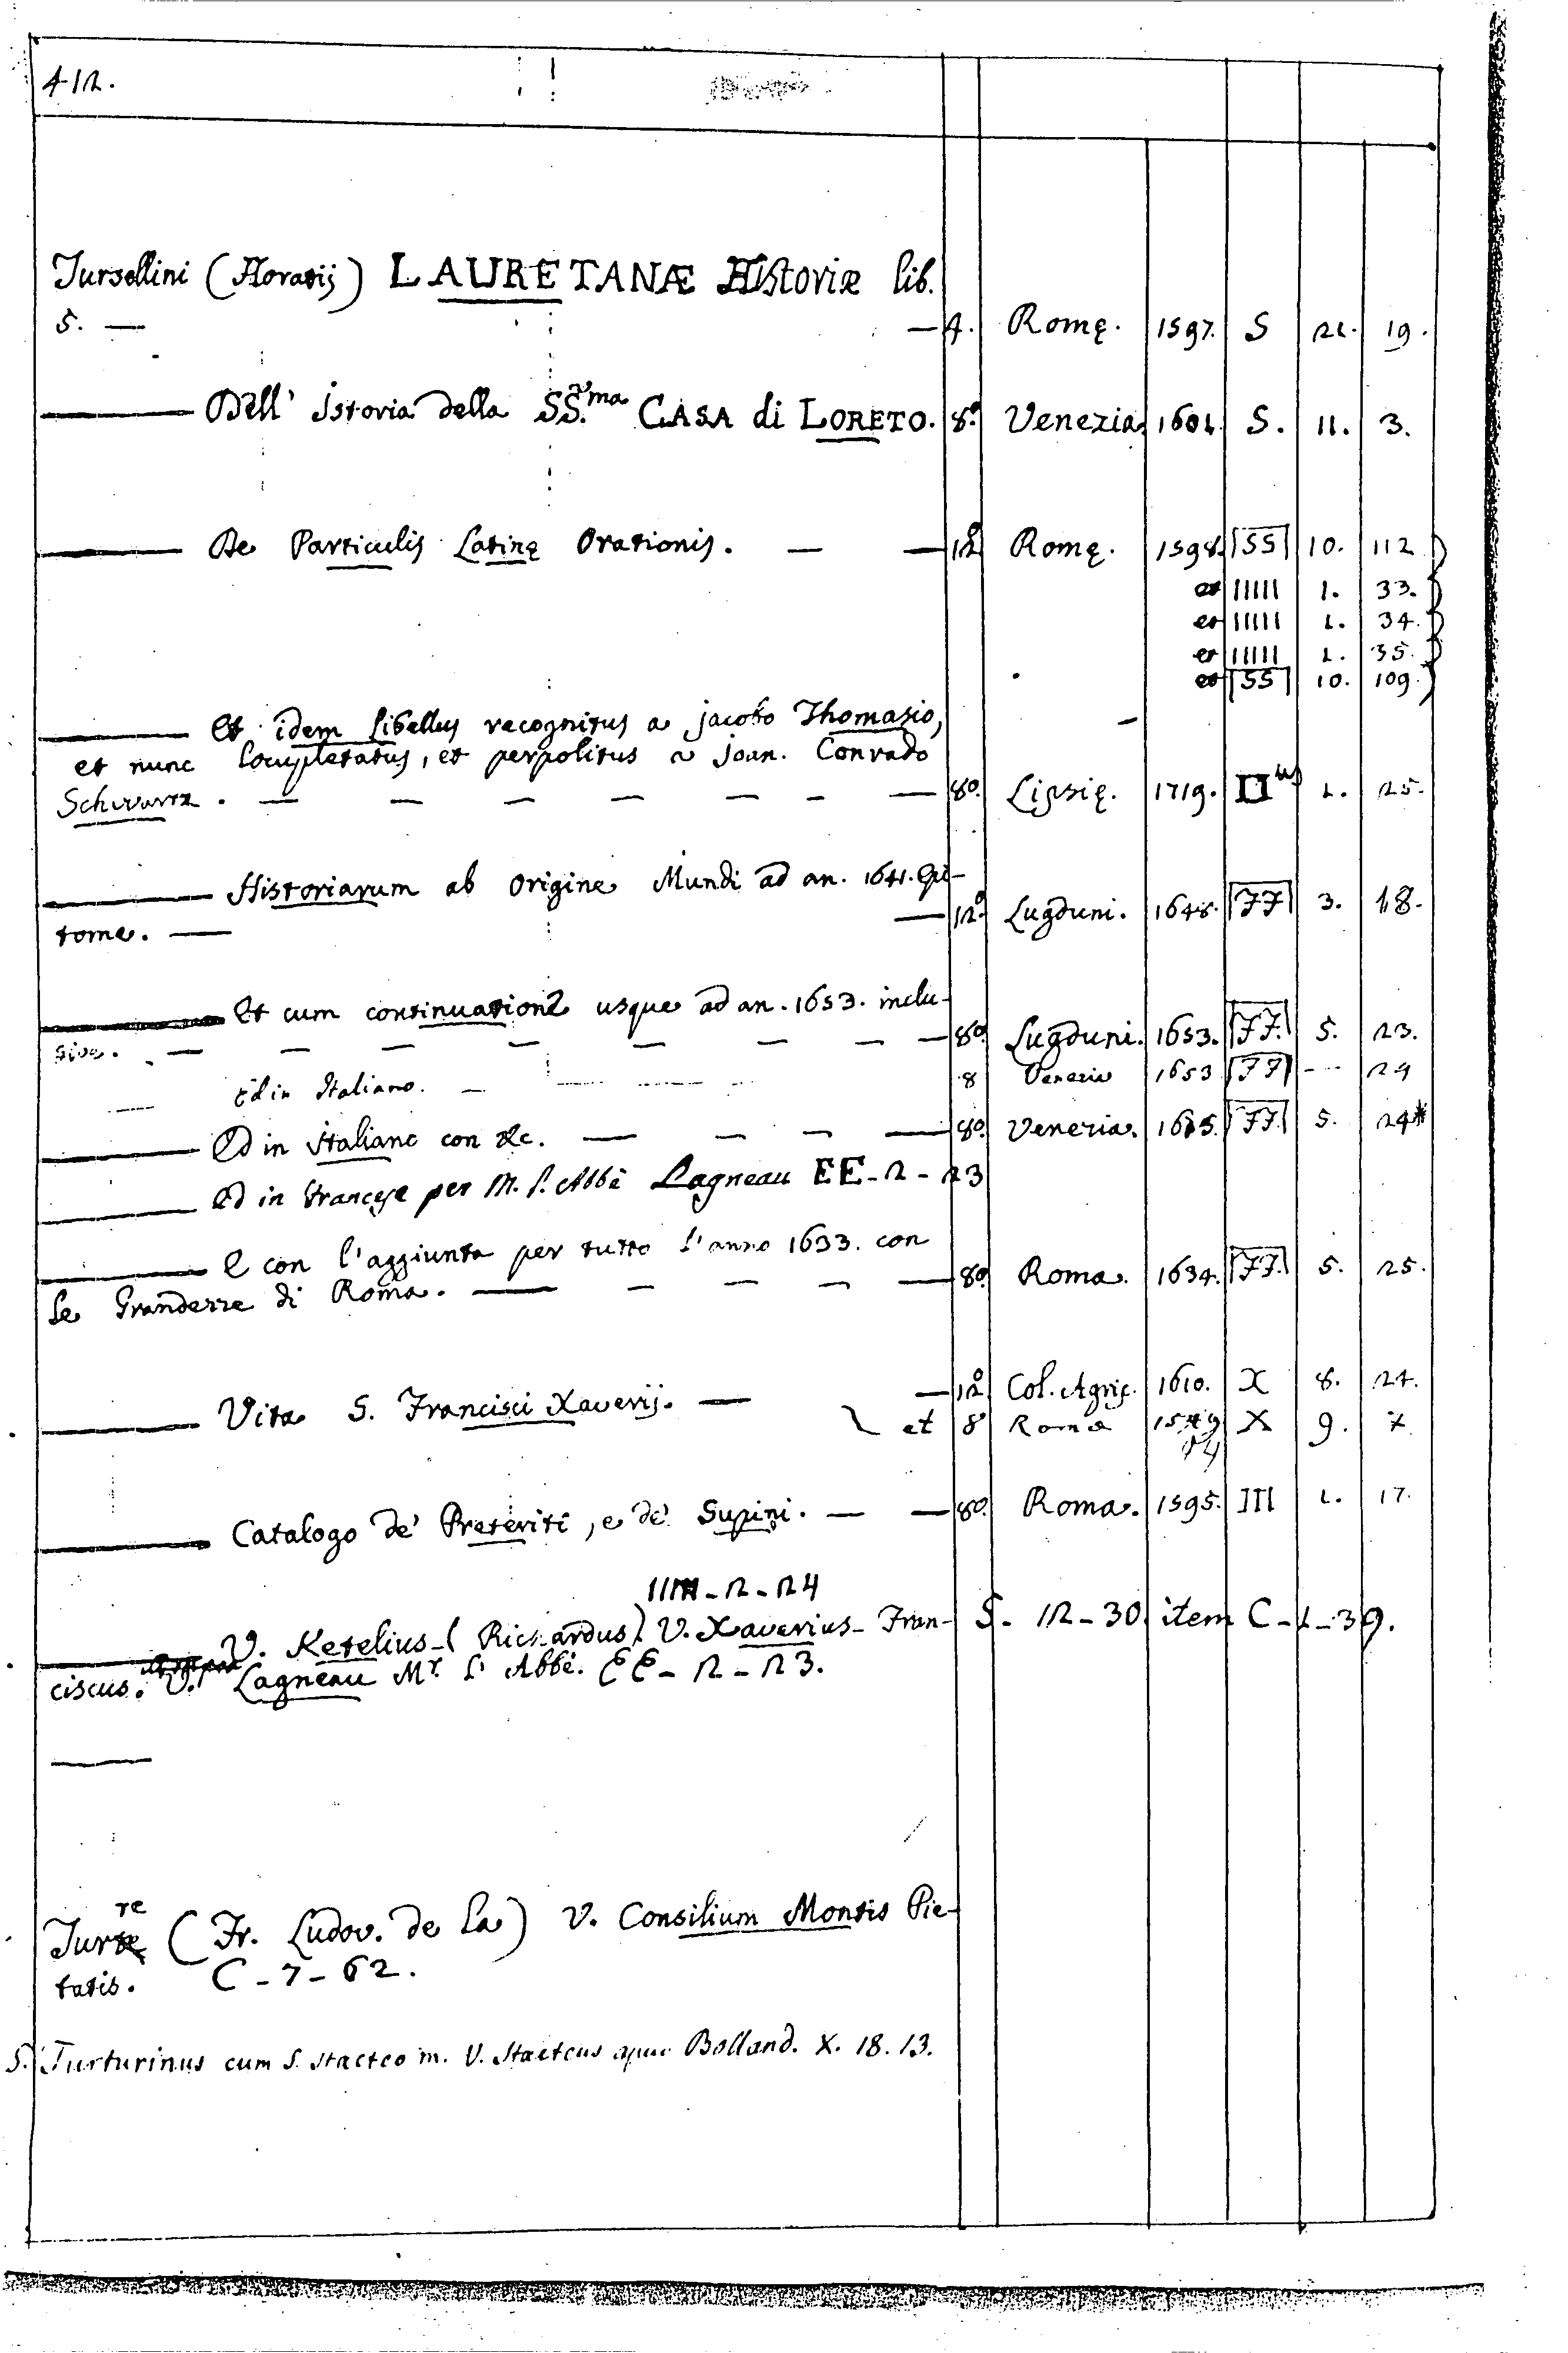 412.
Tursellini (Horatij) LAURETANÆ Historiæ lib.
5. — — 4. Romę. 1597. S 21. 19.
——— Dell' istoria della SS.ma CASA di LORETO. 8.º Venezia 1601. S. 11. 3.
——— De Particulis Latinę Orationis. — — 12º Romę. 1598. SS 10. 112
et IIIII 1. 33.
et IIIII 1. 34.
et IIIII 1. 35.
et SS 10. 109.
——— Et idem libellus recognitus a jacobo Thomasio,
et nunc locupletatus, et perpolitus a Joan. Conrado
Schwartz. — — — — — — — 8º. Lipsię. 1719. II 1. 25.
——— Historiarum ab origine Mundi ad an. 1641. Epi-
tome. — — 12º Lugduni. 1648. FF 3. 18.
——— Et cum continuatione usque ad an. 1653. inclu-
sive. — — — — — — — — 8º. Lugduni. 1653. FF. 5. 23.
Ed in Italiano. — 8 Venezia 1653 FF --- 29
——— Ed in italiano con &c. — — — — 8º. Venezia. 1685. FF. 5. 24*
——— Ed in Francese per M. l'Abbé Lagneau EE-2-23
——— E con l'aggiunta per tutto l'anno 1633. con
le Grandezze di Roma. — — — — — 8º Roma. 1634. FF. 5. 25.
——— Vita S. Francisci Xaverij. — — 12º Col. Agrip. 1610. X 8. 24.
et 8 Roma 1594 X 9. 7
——— Catalogo de' Preteriti, e de' Supini. — — 8º. Roma. 1595. III 1. 17.
2-24
——— V. Ketelius-(Richardus). V. Xaverius-Fran- S-12-30 item C-1-39.
ciscus. V. Lagneau Mr. l'Abbé. EE-2-23.
———
Turre (Fr. Ludov. de la) V. Consilium Montis Pie-
tatis. C-7-62.
S. Turturinus cum S. Stacteo m. V. Stacteus apud Bolland. X. 18. 13.